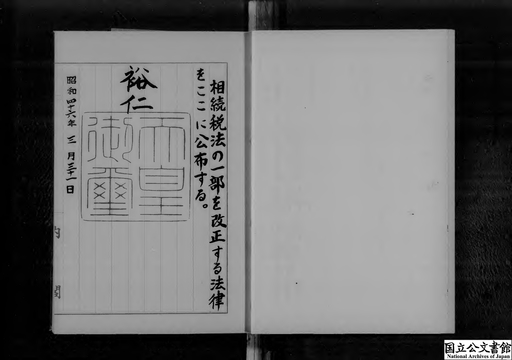 相続税法の一部を改正する法律
をここに公布する。
裕仁
天皇
御璽
昭和四十六年三月三十一日
内閣
国立公文書館
National Archives of Japan